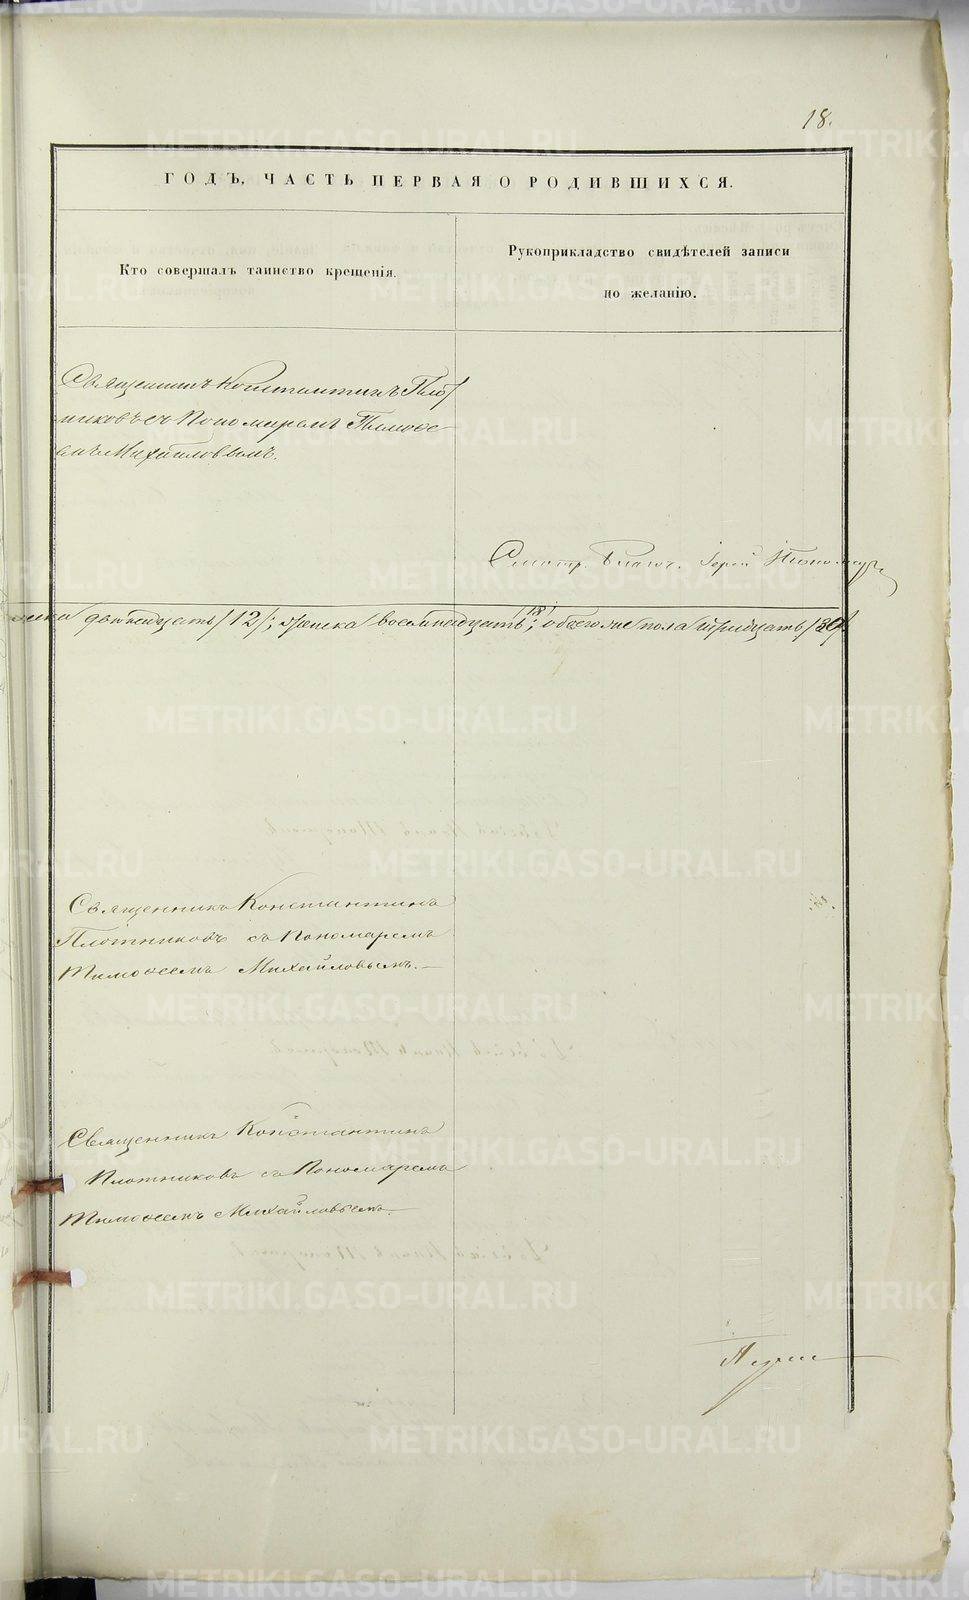 18.
ГОДЪ, ЧАСТЬ ПЕРВАЯ О РОДИВШИХСЯ.
Кто совершалъ таинство крещенія.
Рукоприкладство свидѣтелей записи
по желанію.
Священникъ Константинъ Плот
никовъ съ Пономаремъ Тимоѳе
емъ Михайловымъ.
Смотр. Благоч. Іерей
двѣнадцать /12/; женска восемнадцать /18/; обоего же пола тридцать /30/.
Священникъ Константинъ
Плотниковъ съ Пономаремъ
Тимоѳеемъ Михайловымъ.—
Священникъ Константинъ
Плотниковъ съ Пономаремъ
Тимоѳеемъ Михайловымъ.—
METRIKI.GASO-URAL.RU